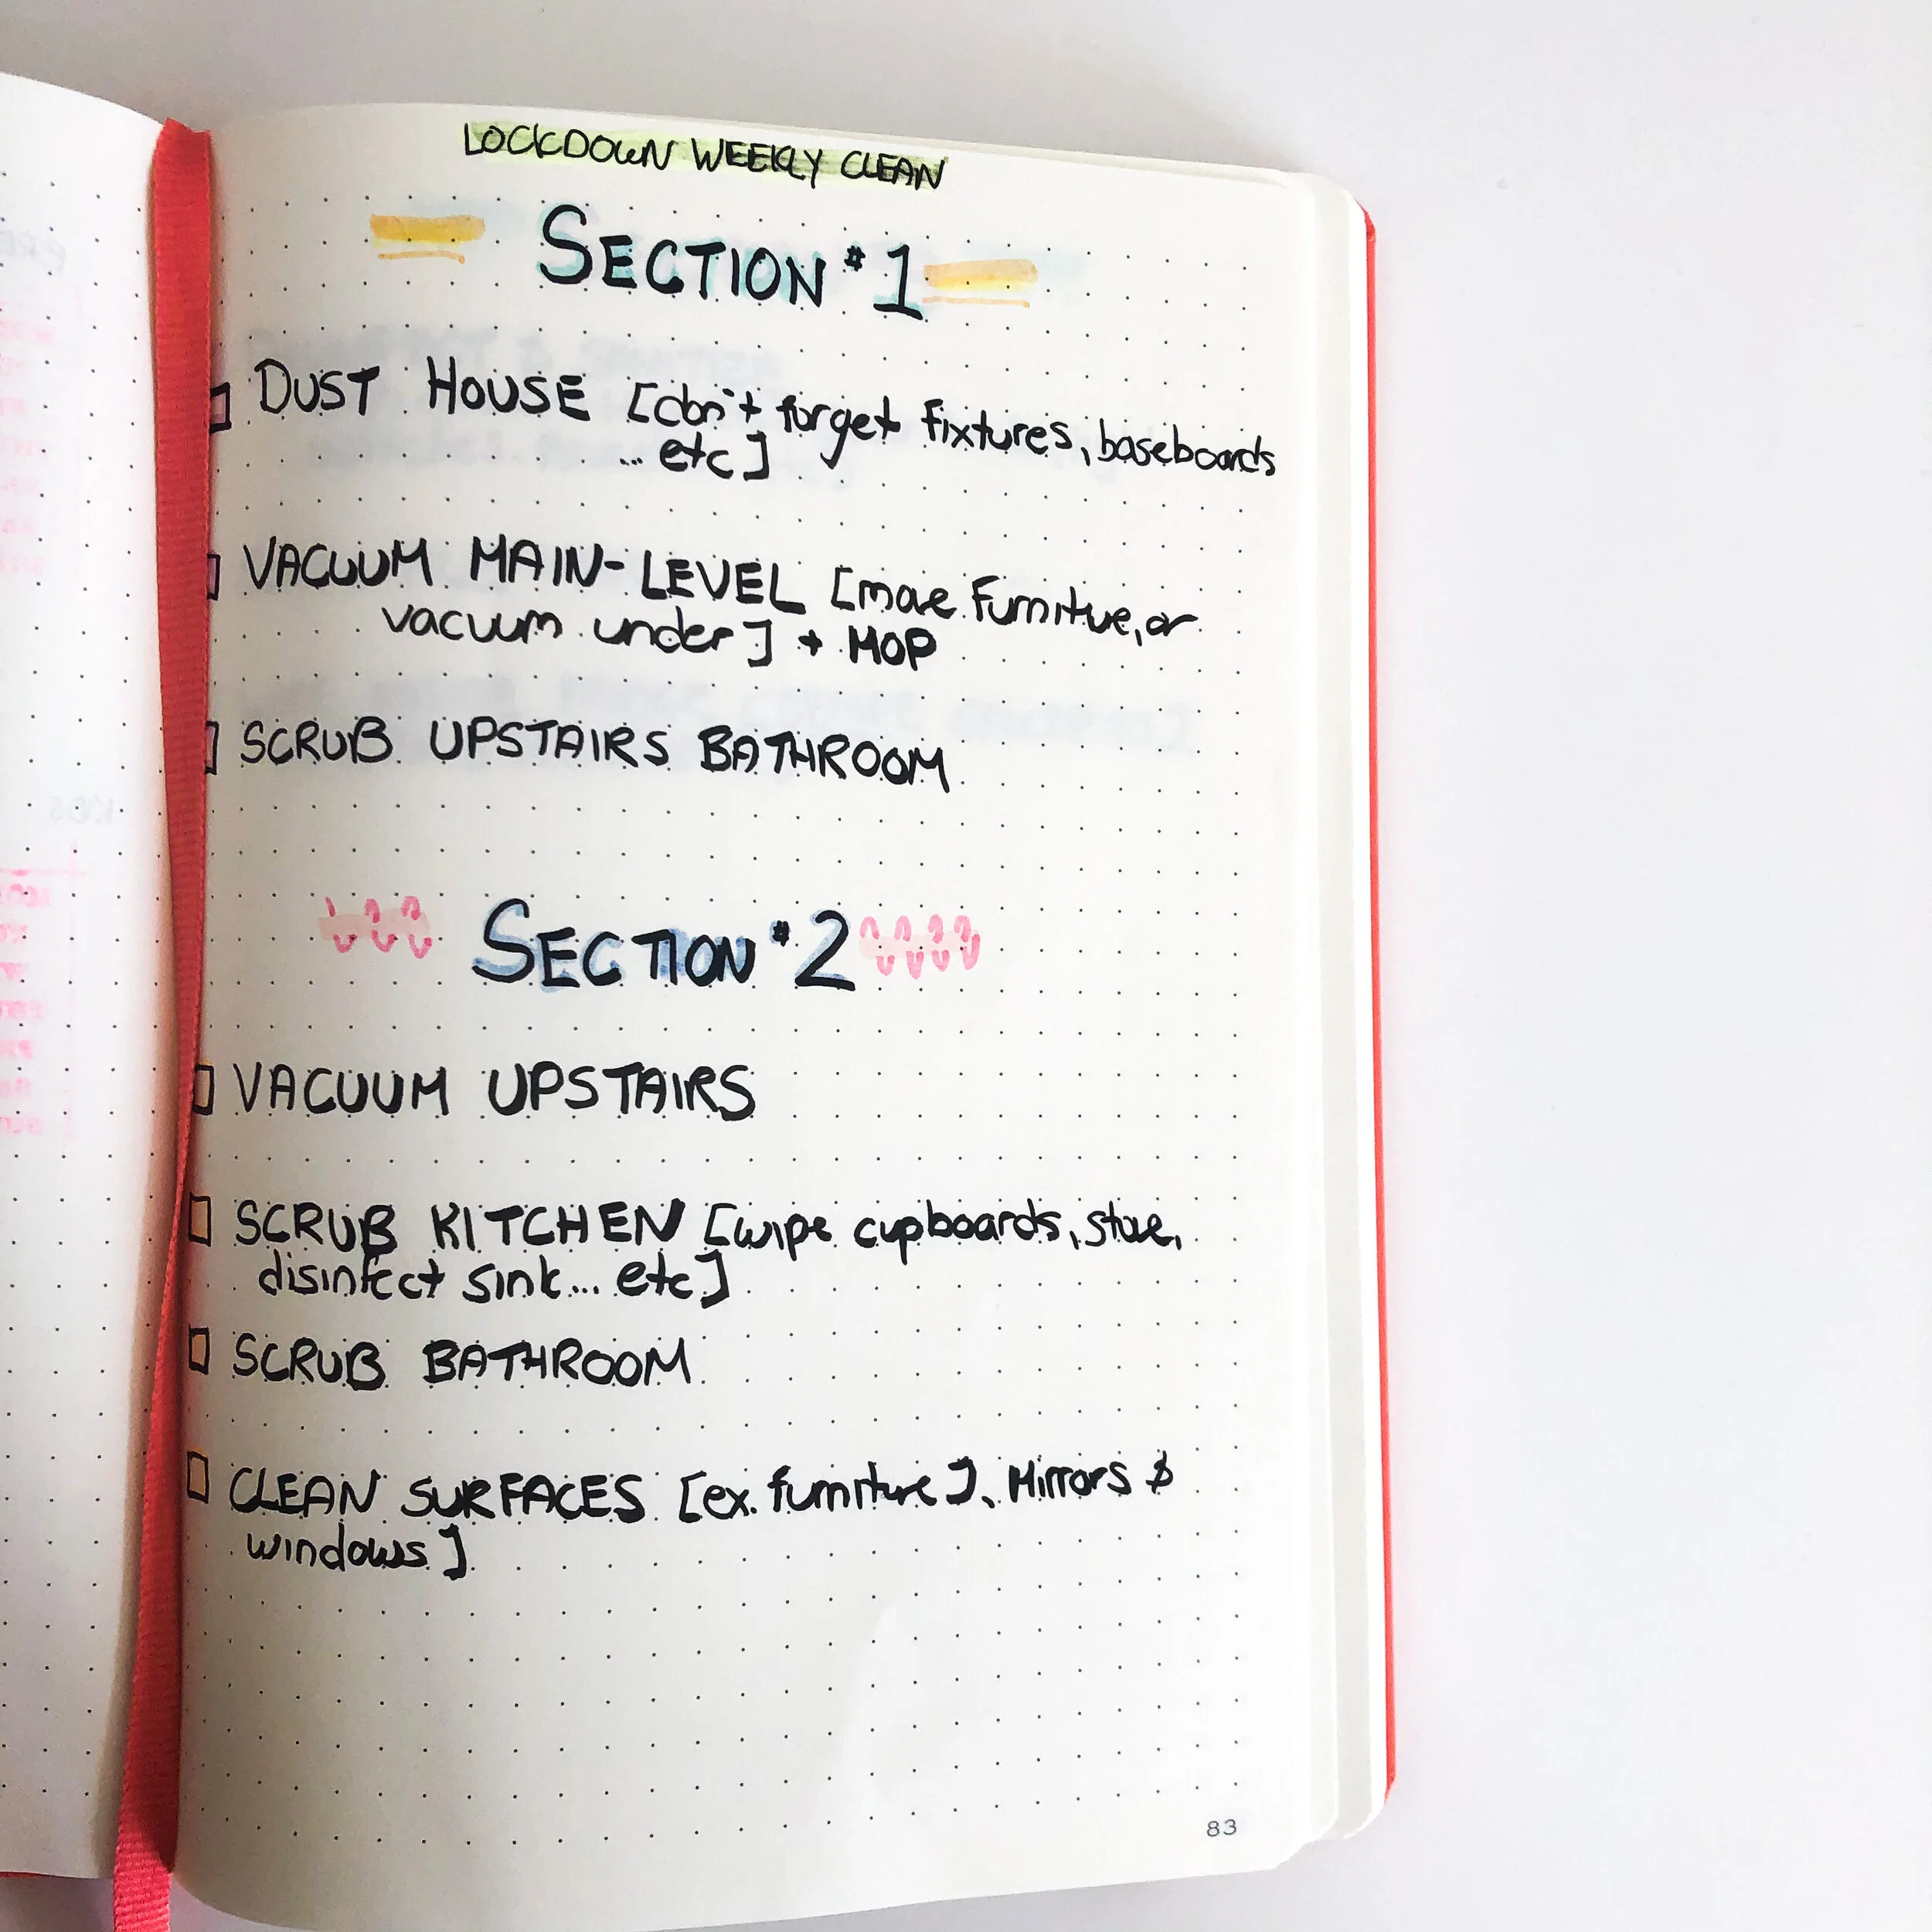 LOCKDOWN WEEKLY CLEAN
SECTION #1
DUST HOUSE [don't forget fixtures, baseboards
... etc]
VACUUM MAIN-LEVEL [move furniture, or
vacuum under] + MOP
SCRUB UPSTAIRS BATHROOM
SECTION #2
VACUUM UPSTAIRS
SCRUB KITCHEN [wipe cupboards, stove,
disinfect sink... etc]
SCRUB BATHROOM
CLEAN SURFACES [ex. furniture], Mirrors &
windows]
83